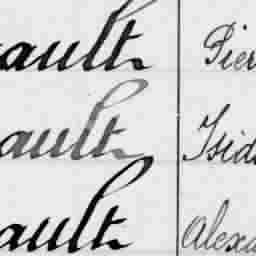 ault Pier
ault Isid
ault Alexa